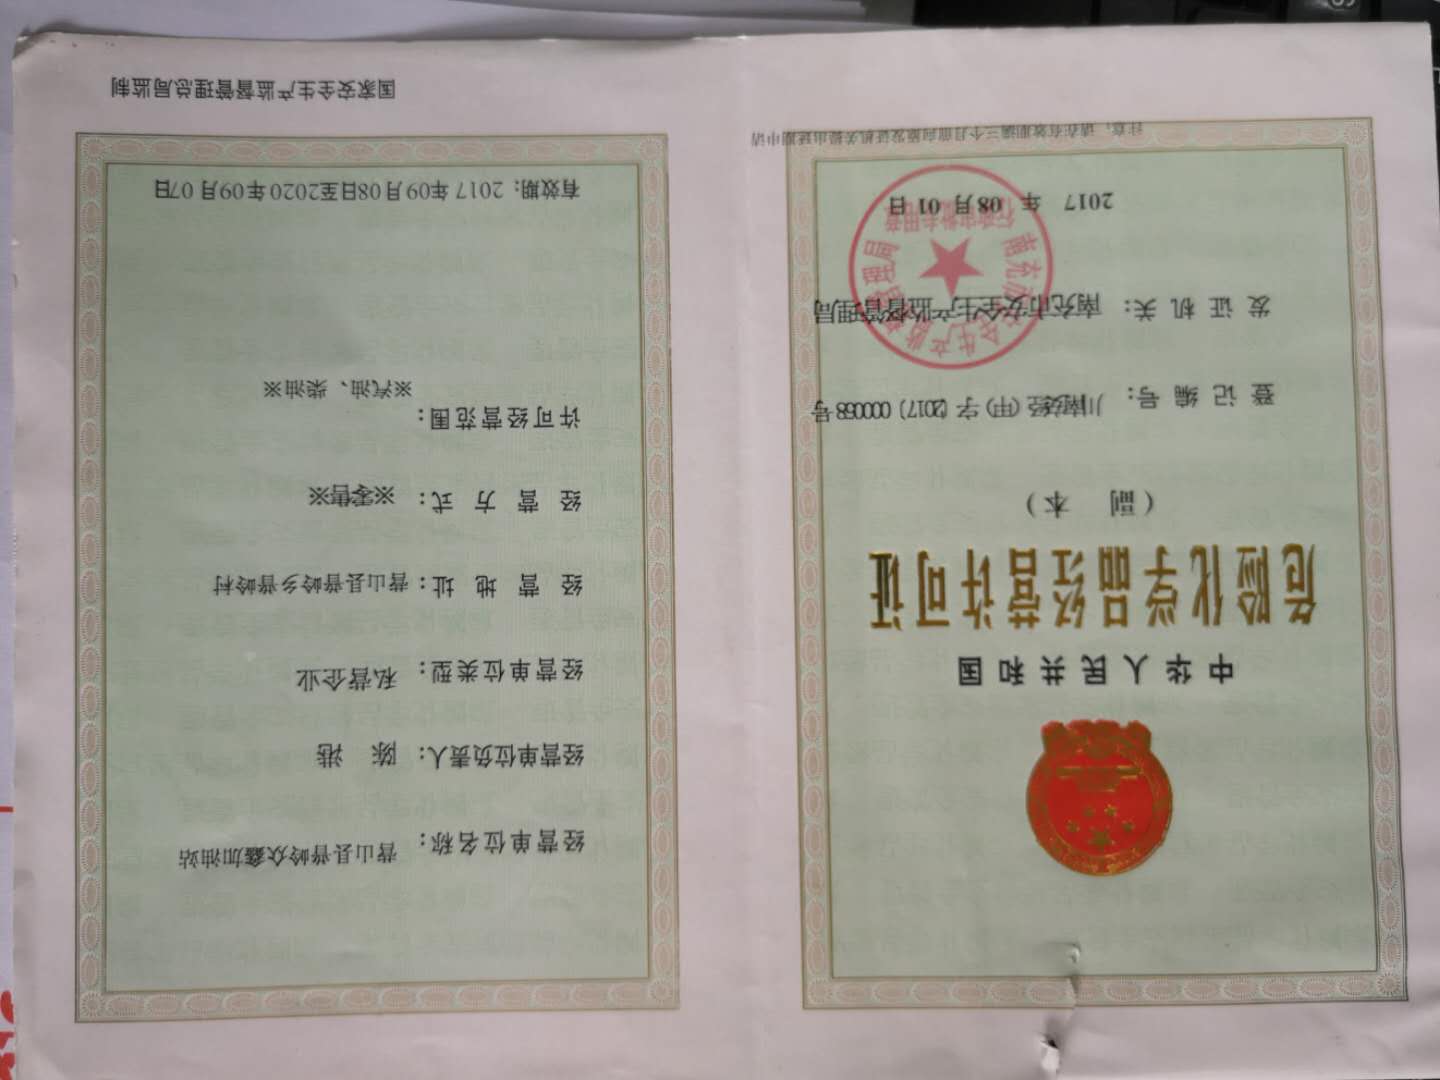 中华人民共和国
危险化学品经营许可证
(副 本)
登记编号: 川南安经(甲)字(2017)000068号
发证机关: 南充市安全生产监督管理局
2017 年 08月 01 日
南充市安全生产监督管理局
行政审批专用章
注意:请在有效期满三个月前向原发证机关提出延期申请
经营单位名称: 营山县普岭众鑫加油站
经营单位负责人: 陈 港
经营单位类型: 私营企业
经营地址: 营山县普岭乡普岭村
经营方式: ※零售※
许可经营范围:
※汽油、柴油※
有效期: 2017年09月08日至2020年09月07日
国家安全生产监督管理总局监制